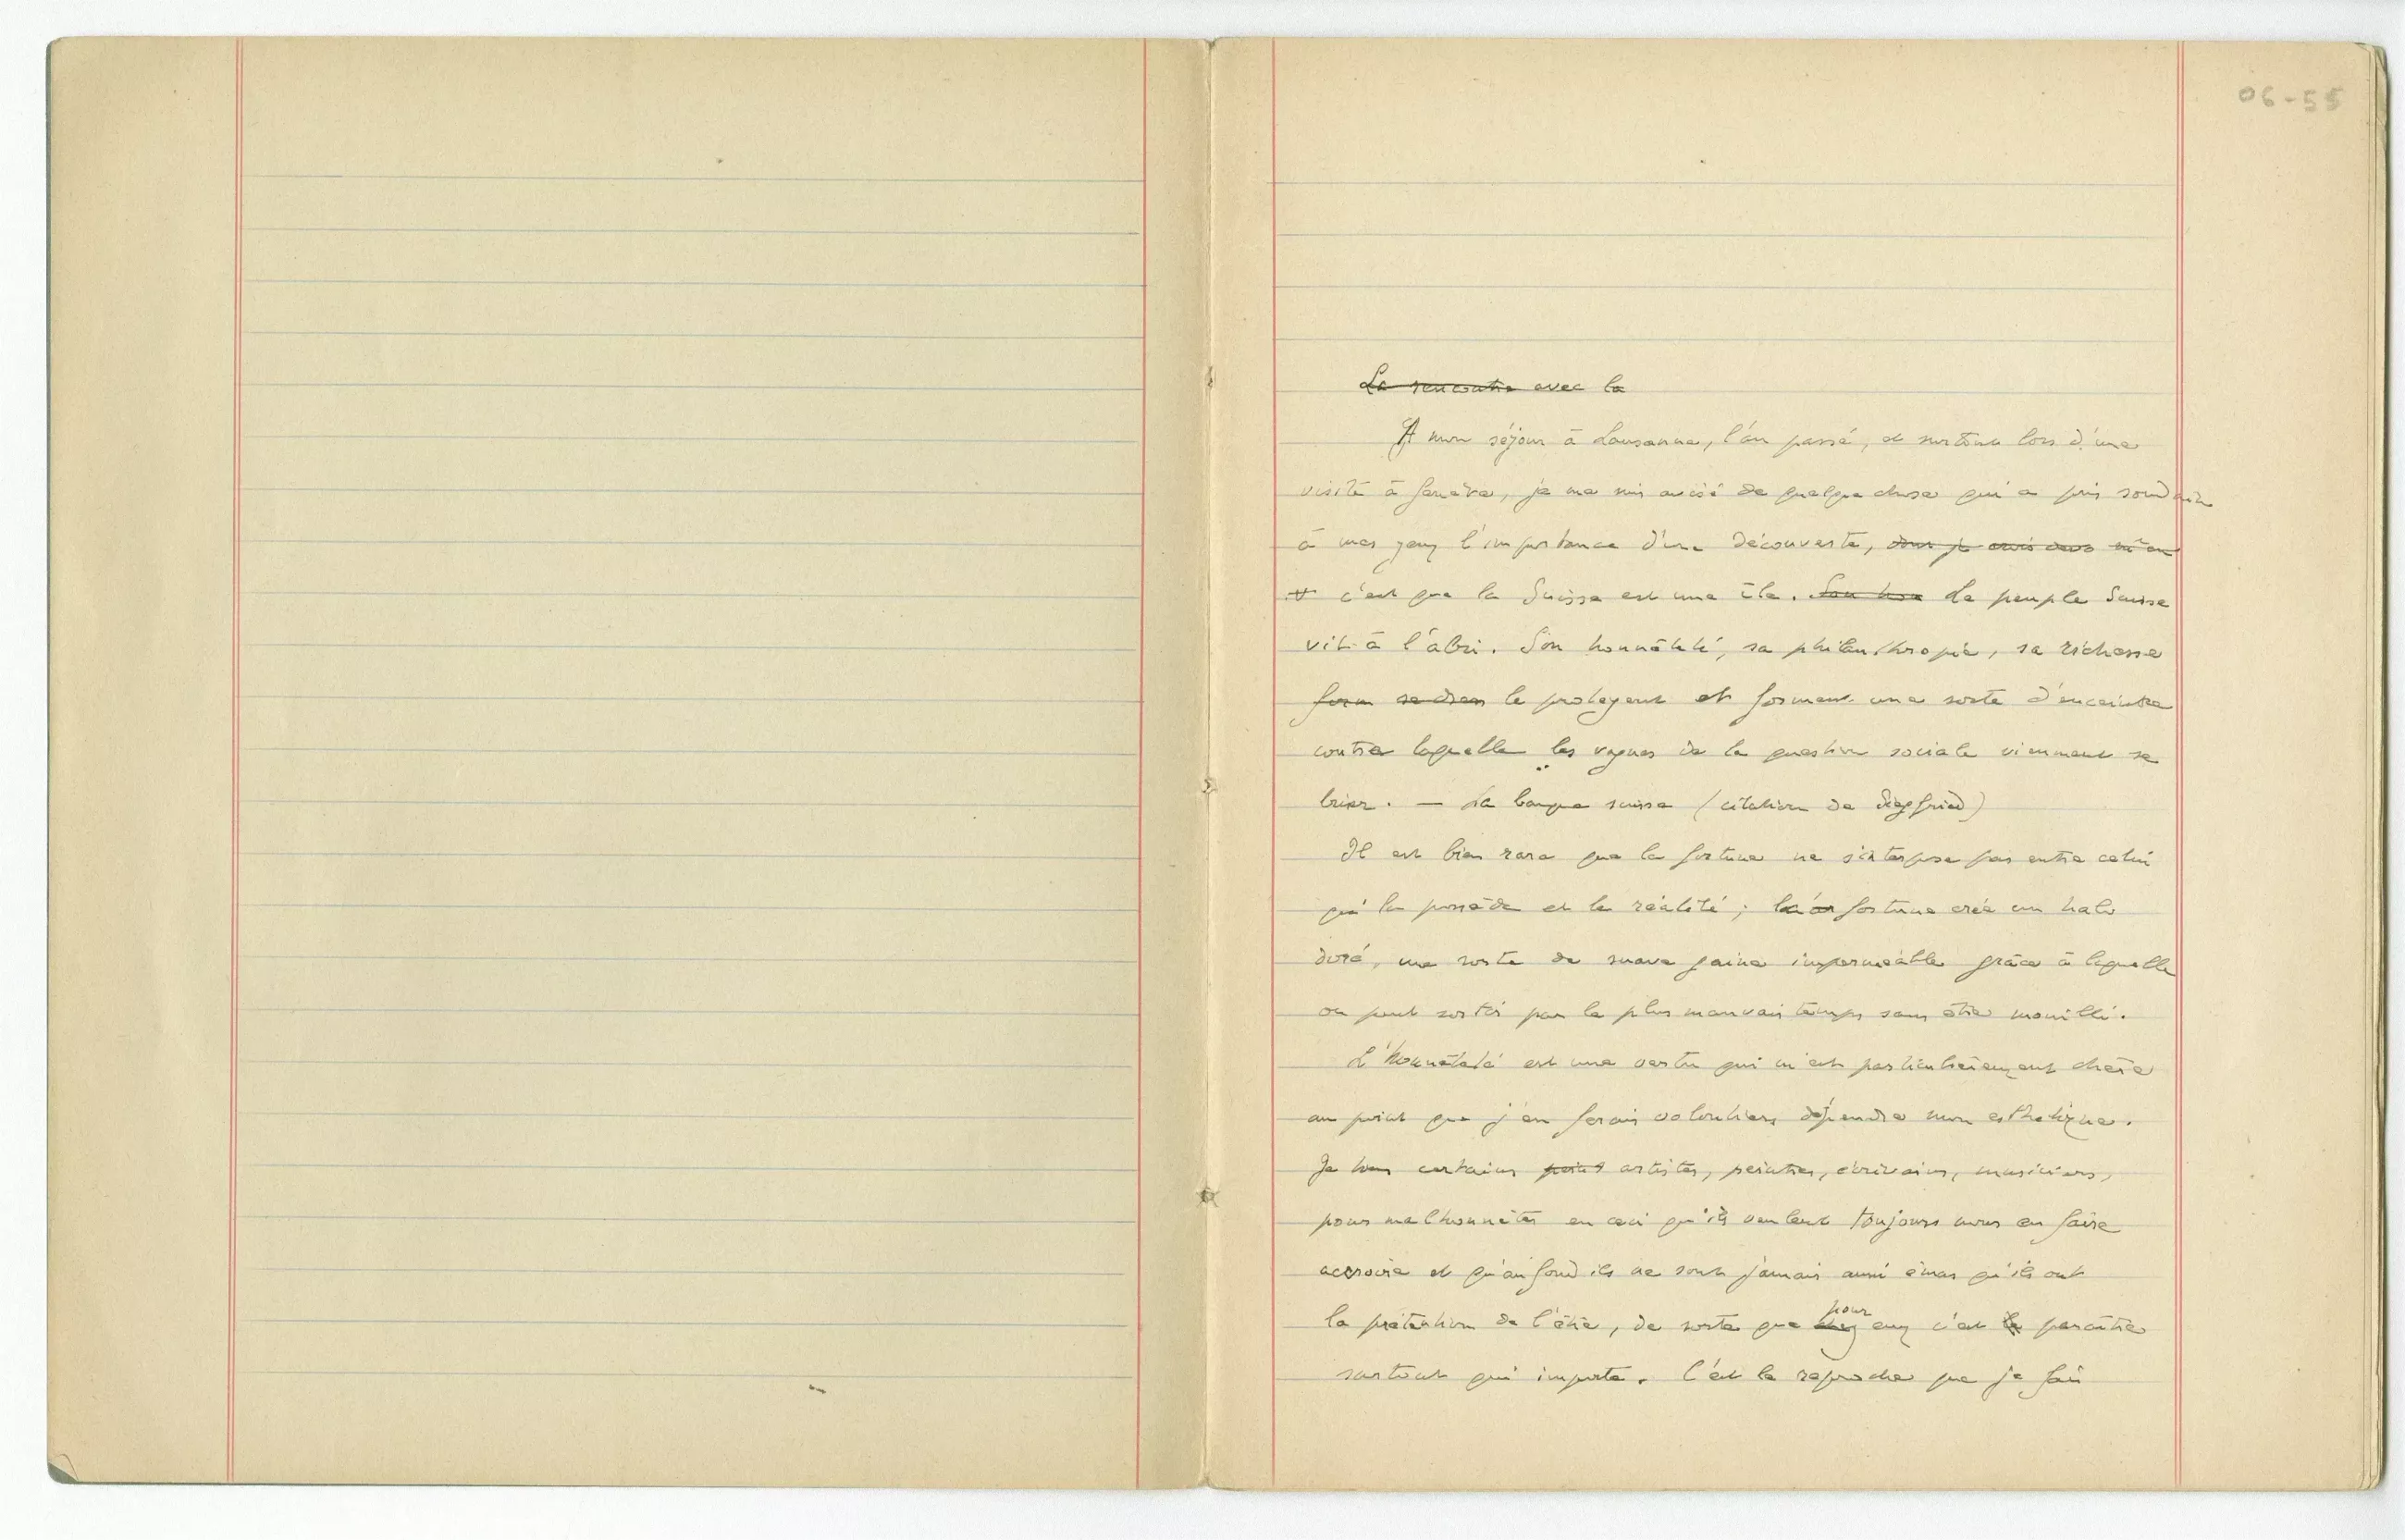 06-55
La rencontre avec la
A mon séjour à Lausanne, l'an passé, et surtout lors d'une
visite à Genève, je me suis avisé de quelque chose qui a pris soudain
à mes yeux l'importance d'une découverte,
c'est que la Suisse est une île. Le peuple Suisse
vit à l'abri. Son honnêteté, sa philanthropie, sa richesse
form le protegent et forment une sorte d'enceinte
contre laquelle les vagues de la question sociale viennent se
briser. — La banque suisse (citation de Siegfried)
Il est bien rare que la fortune ne s'interpose pas entre celui
qui la possède et la réalité; la fortune crée un halo
doré, une sorte de suave gaine imperméable grâce à laquelle
on peut sortir par le plus mauvais temps sans être mouillé.
L'honnêteté est une vertu qui m'est particulièrement chère
au point que j'en ferais volontiers dépendre mon esthétique.
Je tiens certains artistes, peintres, écrivains, musiciens,
pour malhonnêtes en ceci qu'ils veulent toujours nous en faire
accroire et qu'au fond ils ne sont jamais aussi émus qu'ils ont
la prétention de l'être, de sorte que chez pour eux c'est le paraître
surtout qui importe. C'est le reproche que je fais